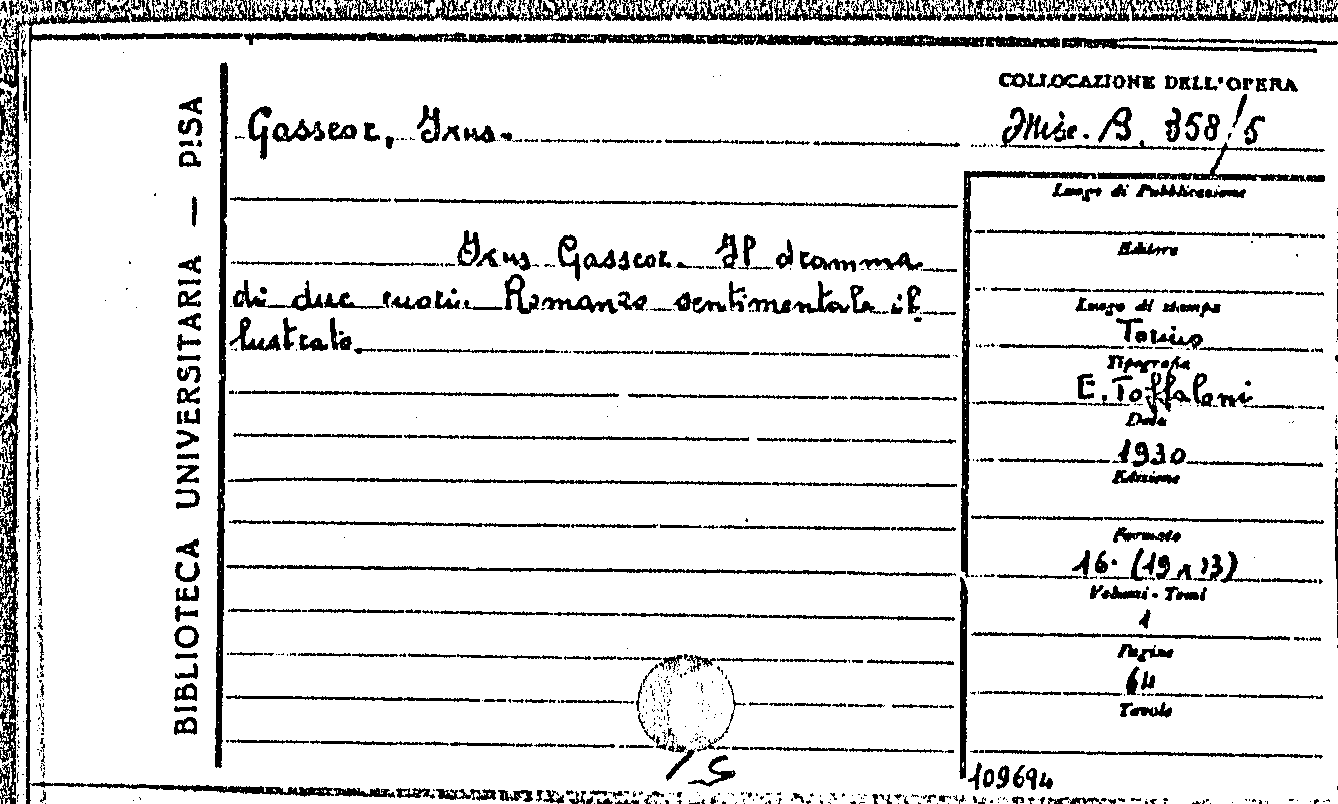 BIBLIOTECA UNIVERSITARIA — PISA
COLLOCAZIONE DELL'OPERA
Misc. B. 358/5
Gasscor, Ixus.
Ixus Gasscor. Il dramma
di due cuori. Romanzo sentimentale il
lustrato.
Luogo di Pubblicazione
Editore
Luogo di stampa
Torino
Tipografia
E. Toffaloni
Data
1930
Edizione
Formato
16° (19 x 13)
Volumi - Tomi
1
Pagine
64
Tavole
109694